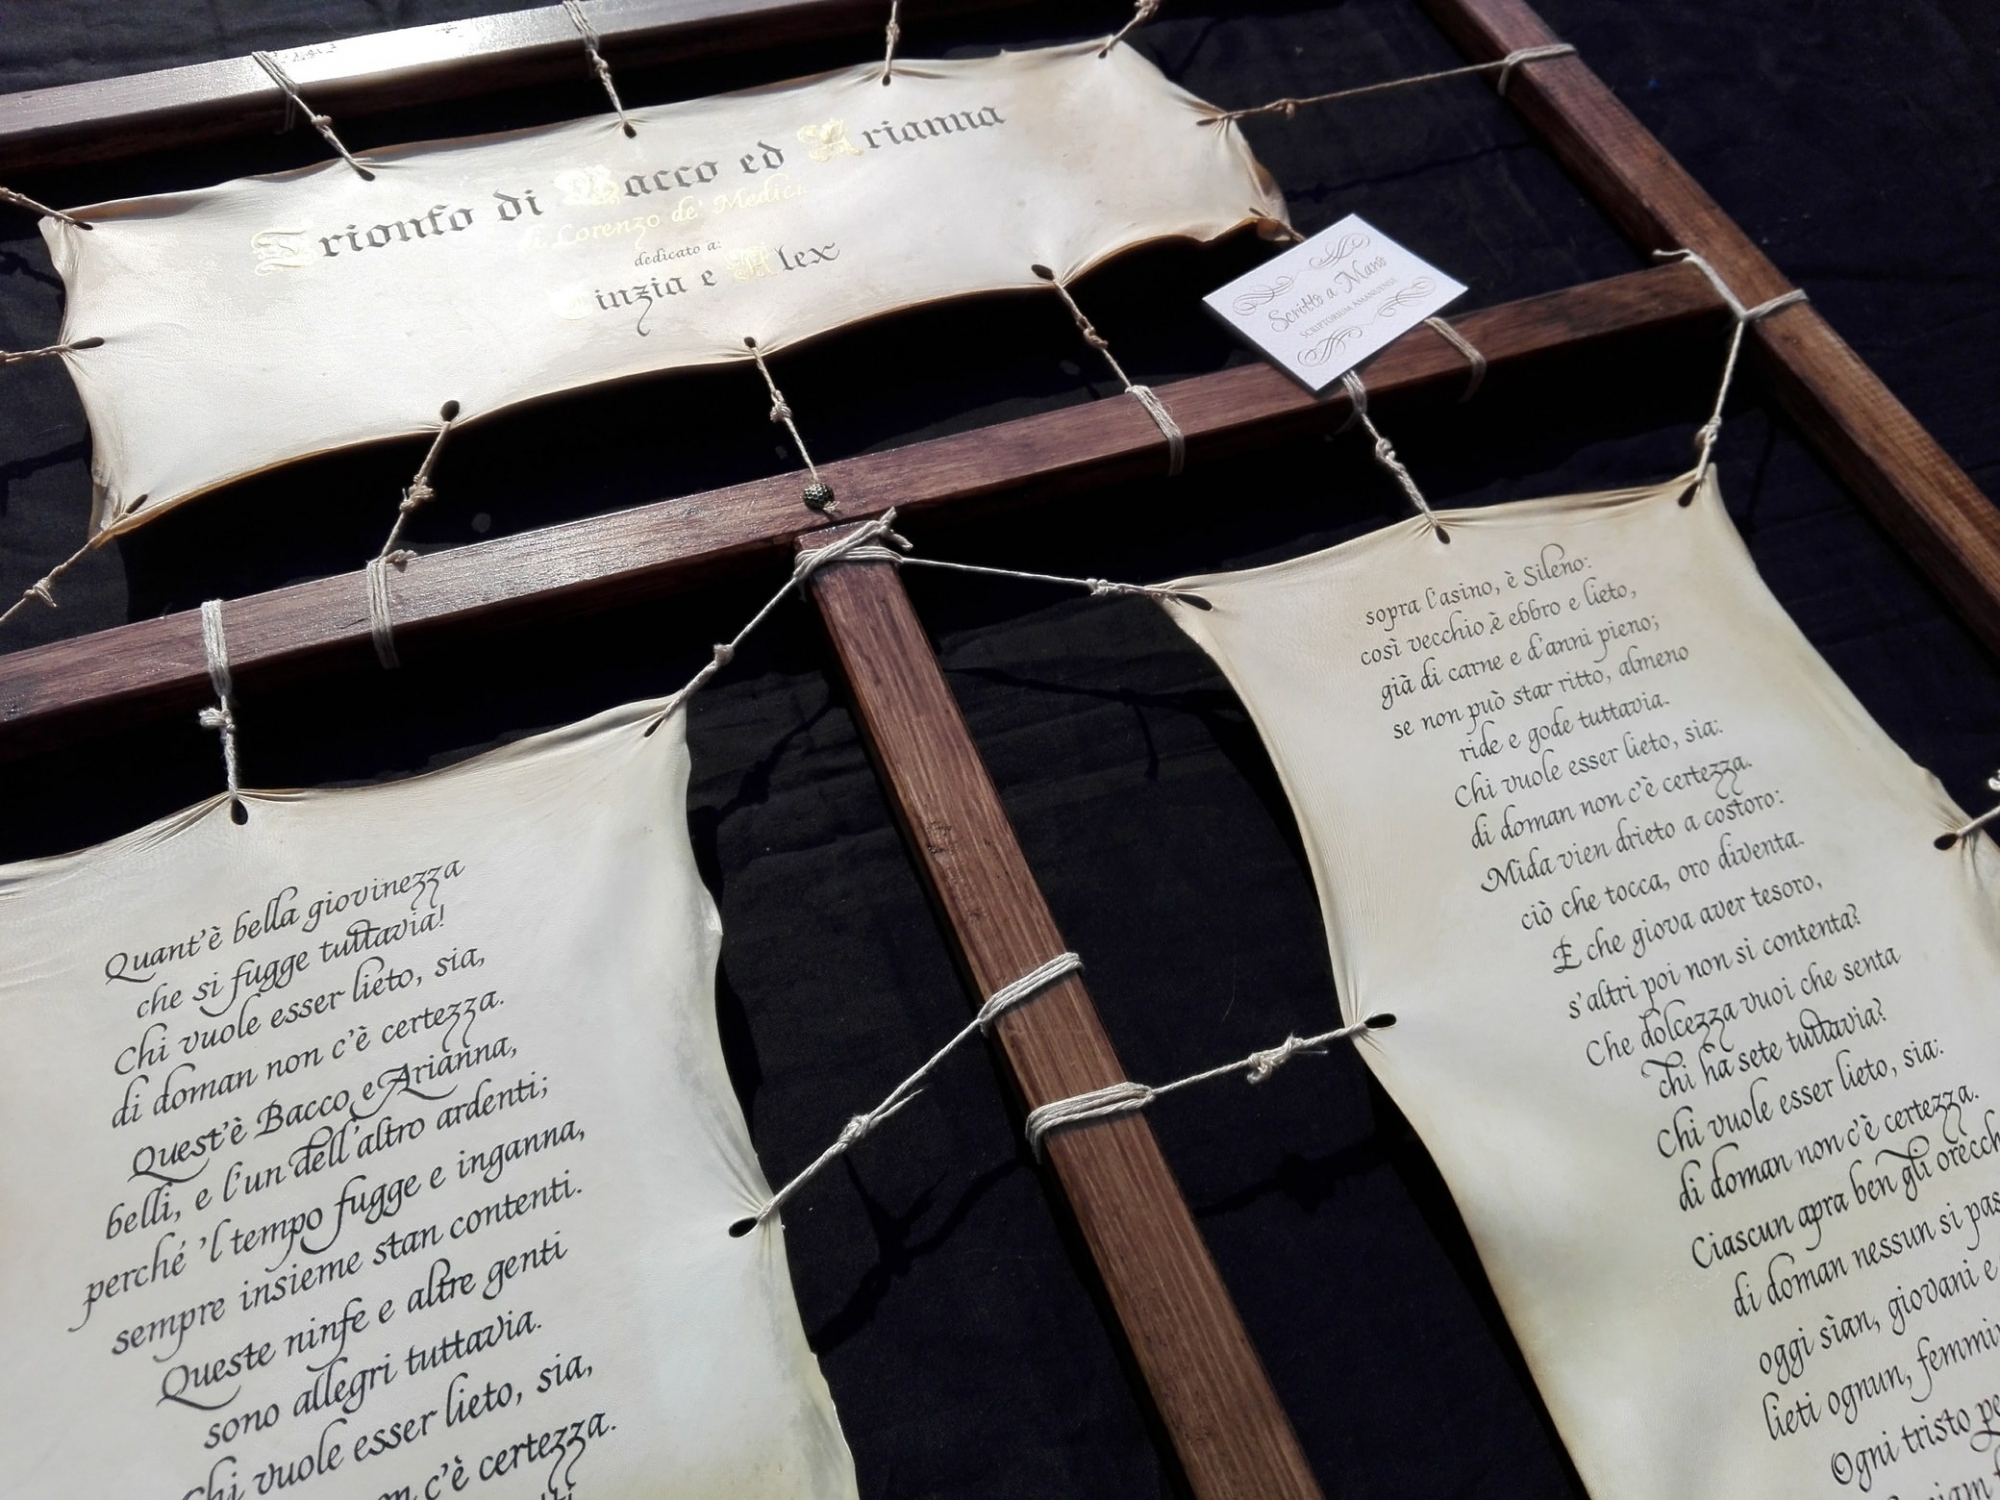 Trionfo di Bacco ed Arianna
di Lorenzo de' Medici
dedicato a:
Cinzia e Alex
Scritto a Mano
SCRIPTORIUM AMANUENSE
Quant'è bella giovinezza
che si fugge tuttavia!
Chi vuole esser lieto, sia,
di doman non c'è certezza.
Quest'è Bacco e Arianna,
belli, e l'un dell'altro ardenti;
perché 'l tempo fugge e inganna,
sempre insieme stan contenti.
Queste ninfe e altre genti
sono allegri tuttavia.
Chi vuole esser lieto, sia,
n c'è certezza.
sopra l'asino, è Sileno:
così vecchio è ebbro e lieto,
già di carne e d'anni pieno;
se non può star ritto, almeno
ride e gode tuttavia.
Chi vuole esser lieto, sia:
di doman non c'è certezza.
Mida vien drieto a costoro:
ciò che tocca, oro diventa.
E che giova aver tesoro,
s'altri poi non si contenta?
Che dolcezza vuoi che senta
chi ha sete tuttavia?
Chi vuole esser lieto, sia:
di doman non c'è certezza.
Ciascun apra ben gli orecch
di doman nessun si pas
oggi sian, giovani e
lieti ognun, femmi
Ogni tristo pe